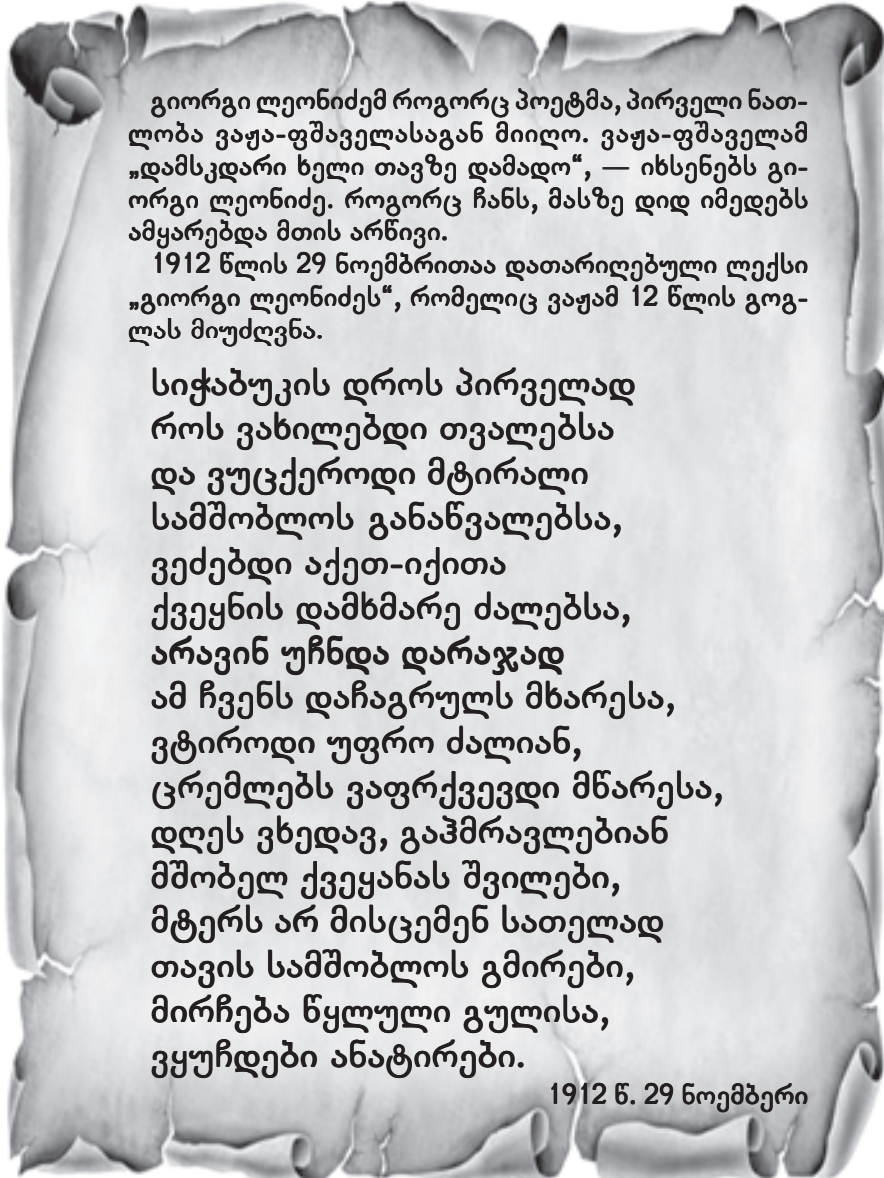 გიორგი ლეონიძემ როგორც პოეტმა, პირველი ნათ-
ლობა ვაჟა-ფშაველასაგან მიიღო. ვაჟა-ფშაველამ
„დამსკდარი ხელი თავზე დამადო“, — იხსენებს გი-
ორგი ლეონიძე. როგორც ჩანს, მასზე დიდ იმედებს
ამყარებდა მთის არწივი.
1912 წლის 29 ნოემბრითაა დათარიღებული ლექსი
„გიორგი ლეონიძეს“, რომელიც ვაჟამ 12 წლის გოგ-
ლას მიუძღვნა.
სიჭაბუკის დროს პირველად
როს ვახილებდი თვალებსა
და ვუცქეროდი მტირალი
სამშობლოს განაწვალებსა,
ვეძებდი აქეთ-იქითა
ქვეყნის დამხმარე ძალებსა,
არავინ უჩნდა დარაჯად
ამ ჩვენს დაჩაგრულს მხარესა,
ვტიროდი უფრო ძალიან,
ცრემლებს ვაფრქვევდი მწარესა,
დღეს ვხედავ, გაჰმრავლებიან
მშობელ ქვეყანას შვილები,
მტერს არ მისცემენ სათელად
თავის სამშობლოს გმირები,
მირჩება წყლული გულისა,
ვყუჩდები ანატირები.
1912 წ. 29 ნოემბერი